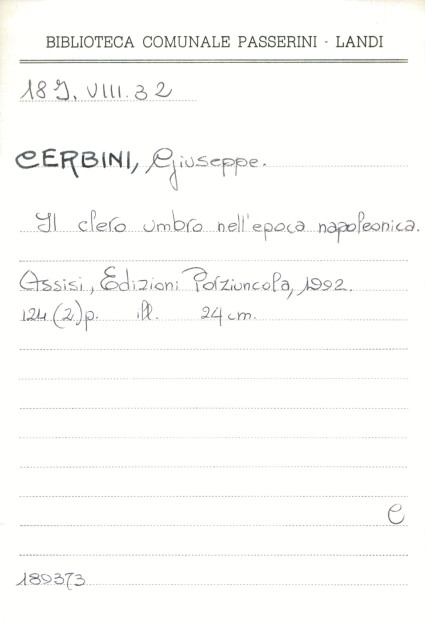 BIBLIOTECA COMUNALE PASSERINI - LANDI
18 I. VIII. 32
CERBINI, Giuseppe.
Il clero umbro nell'epoca napoleonica.
Assisi, Edizioni Porziuncola, 1992.
124 (2) p. ill. 24 cm.
C
189373